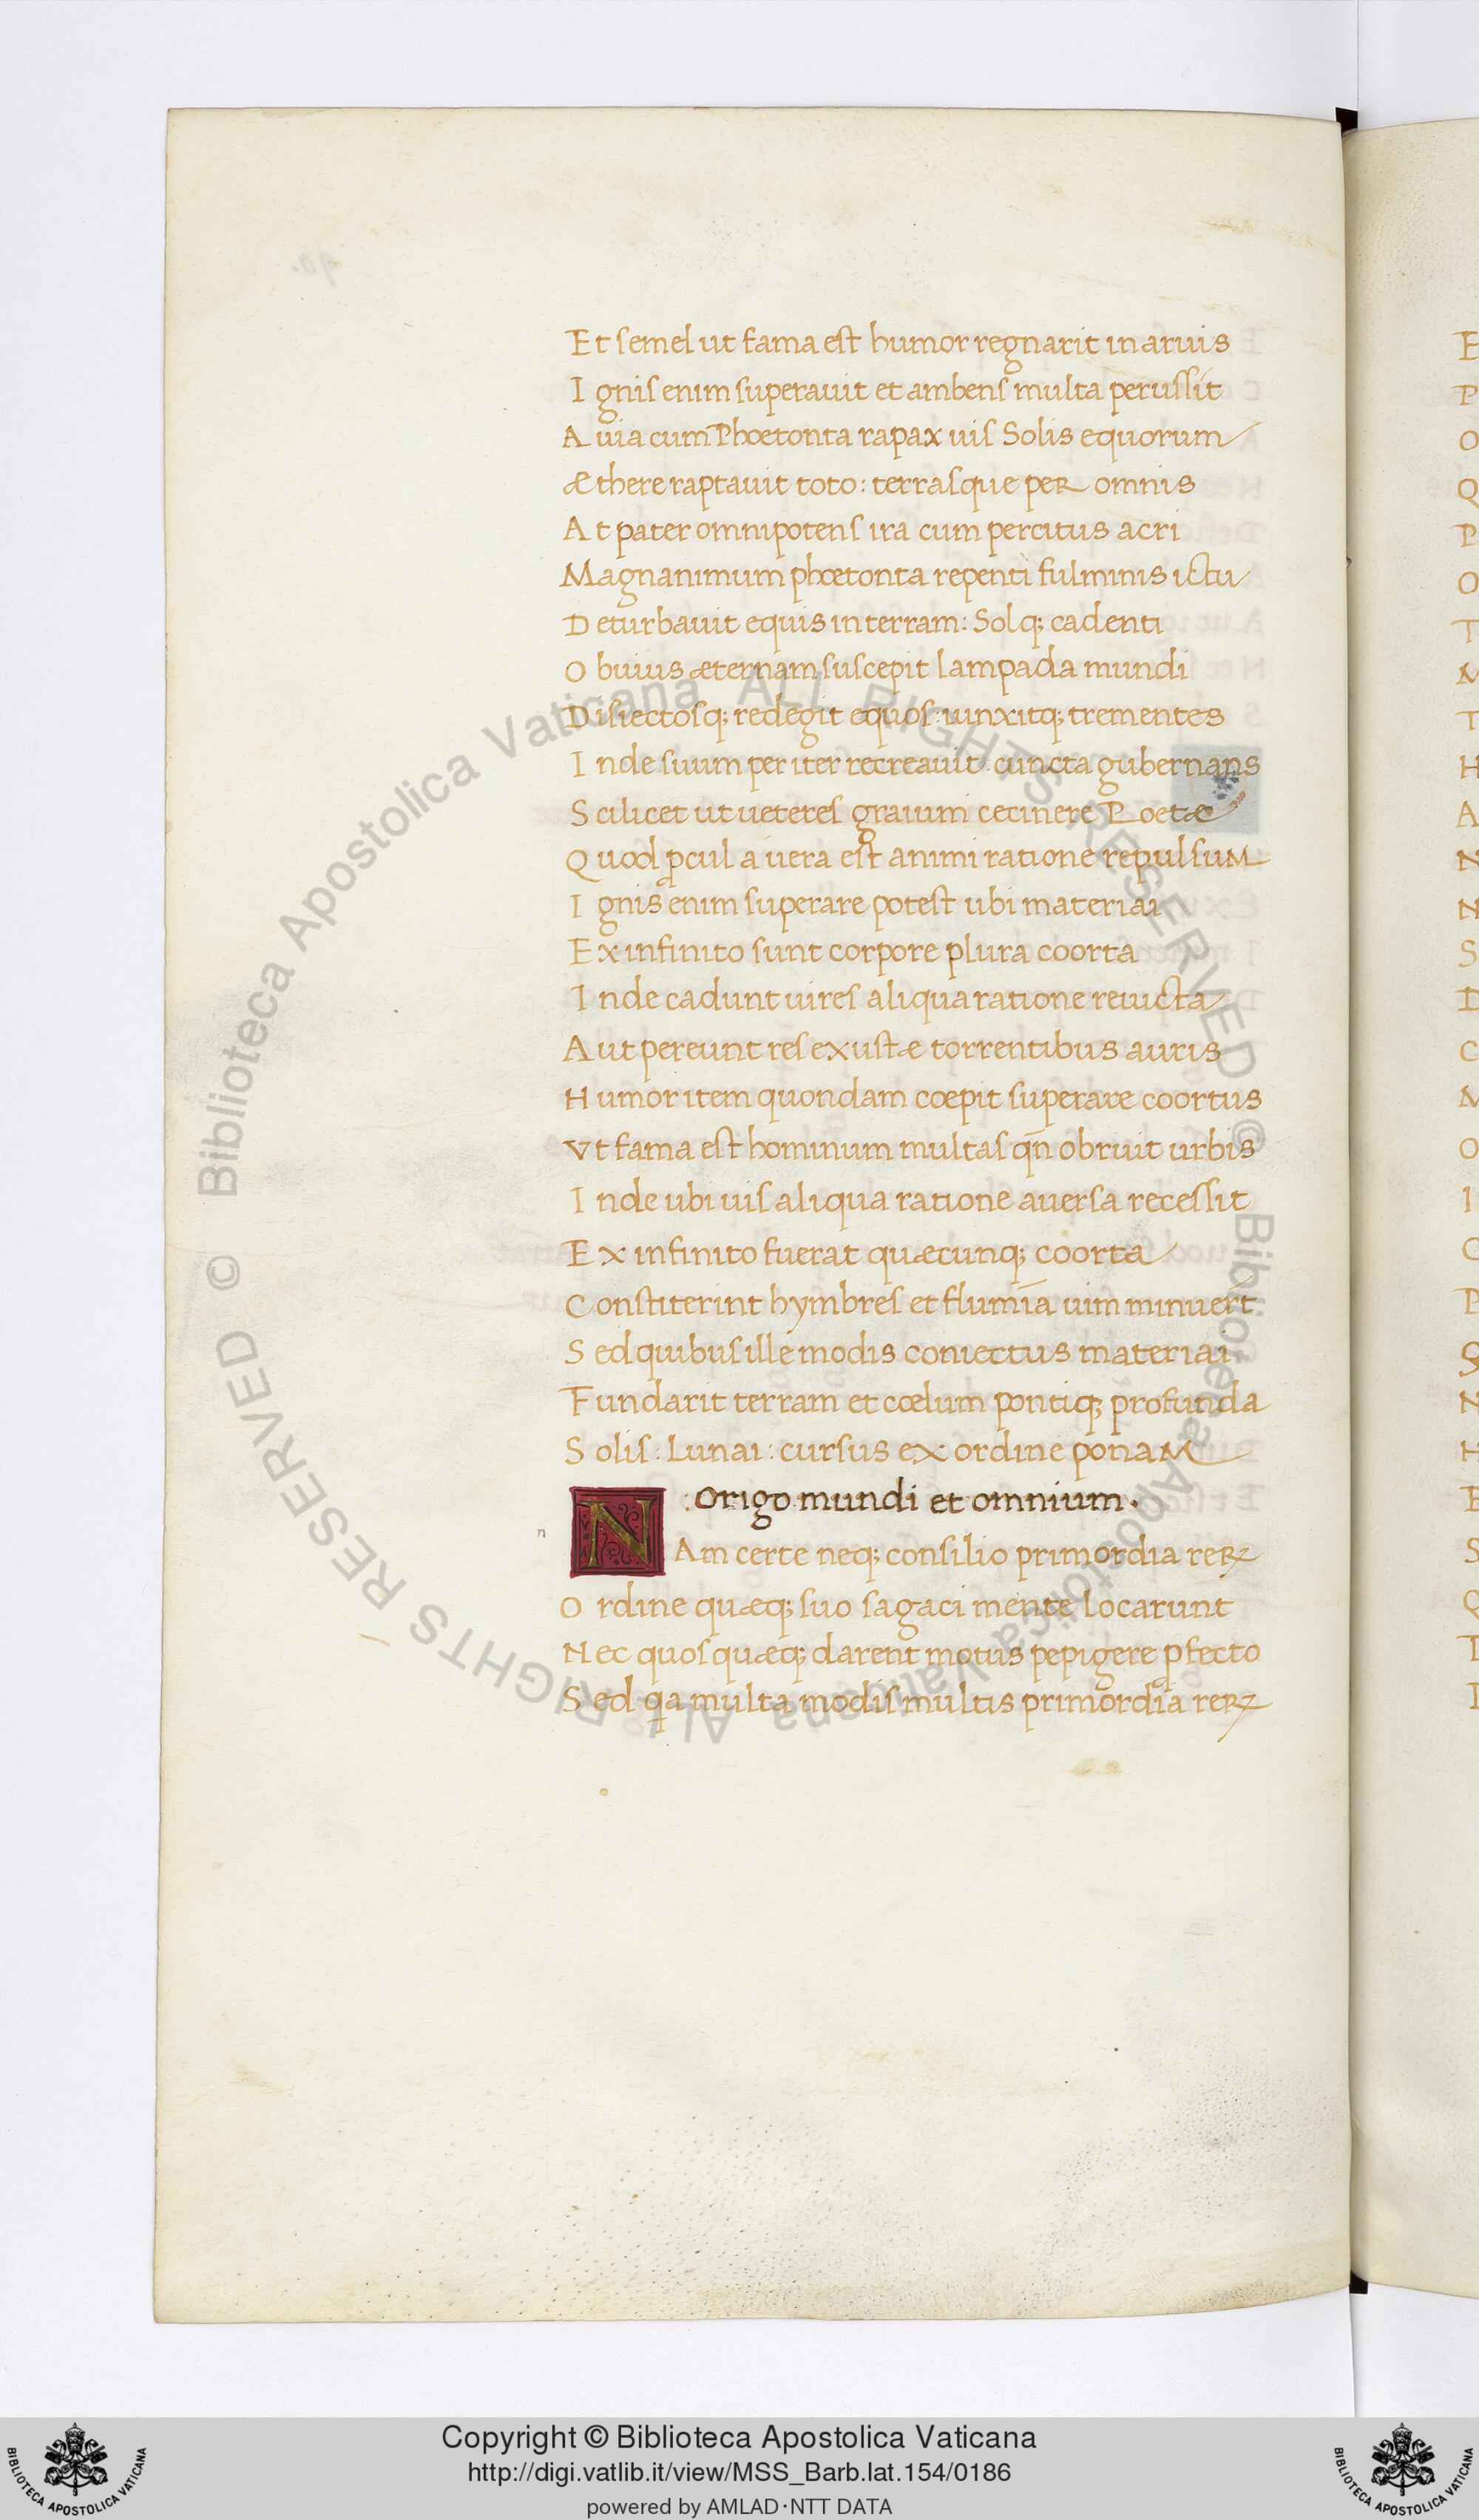 Et semel ut fama est humor regnarit in aruis
Ignis enim superauit et ambens multa perussit
Auia cum Phoetonta rapax uis Solis equorum
Æthere raptauit toto: terrasque per omnis
At pater omnipotens ira cum percitus acri
Magnanimum phoetonta repenti fulminis ictu
Deturbauit equis in terram: Solq; cadenti
Obuius æternam suscepit lampada mundi
Disiectosq; redegit equos: iunxitq; trementes
Inde suum per iter recreauit cuncta gubernans
Scilicet ut ueteres graium cecinere Poetæ
Quod ꝓcul a uera est animi ratione repulsum
Ignis enim superare potest ubi materiai
Ex infinito sunt corpore plura coorta
Inde cadunt uires aliqua ratione reuicta
Aut pereunt res exustæ torrentibus auris
Humor item quondam coepit superare coortus
Vt fama est hominum multas qn̄ obruit urbis
Inde ubi uis aliqua ratione auersa recessit
Ex infinito fuerat quæcunq; coorta
Constiterint hymbres et flumīa uim minuert̄
Sed quibus ille modis coniectus materiai
Fundarit terram et cœlum pontiq; profunda
Solis: Lunai: cursus ex ordine ponam
: Origo mundi et omnium.
n
NAm certe neq; consilio primordia reꝝ
Ordine quæq; suo sagaci mente locarunt
Nec quos quæq; darent motus pepigere ꝓfecto
Sed qa multa modis multis primordia reꝝ
E
P
O
Q
P
O
T
M
T
H
A
N
N
S
D
C
M
O
I
C
P
S
N
H
E
S
Q
T
I
© Biblioteca Apostolica Vaticana ALL RIGHTS RESERVED © Biblioteca Apostolica Vaticana ALL RIGHTS RESERVED
Copyright © Biblioteca Apostolica Vaticana
http://digi.vatlib.it/view/MSS_Barb.lat.154/0186
powered by AMLAD·NTT DATA
BIBLIOTECA APOSTOLICA VATICANA
BIBLIOTECA APOSTOLICA VATICANA